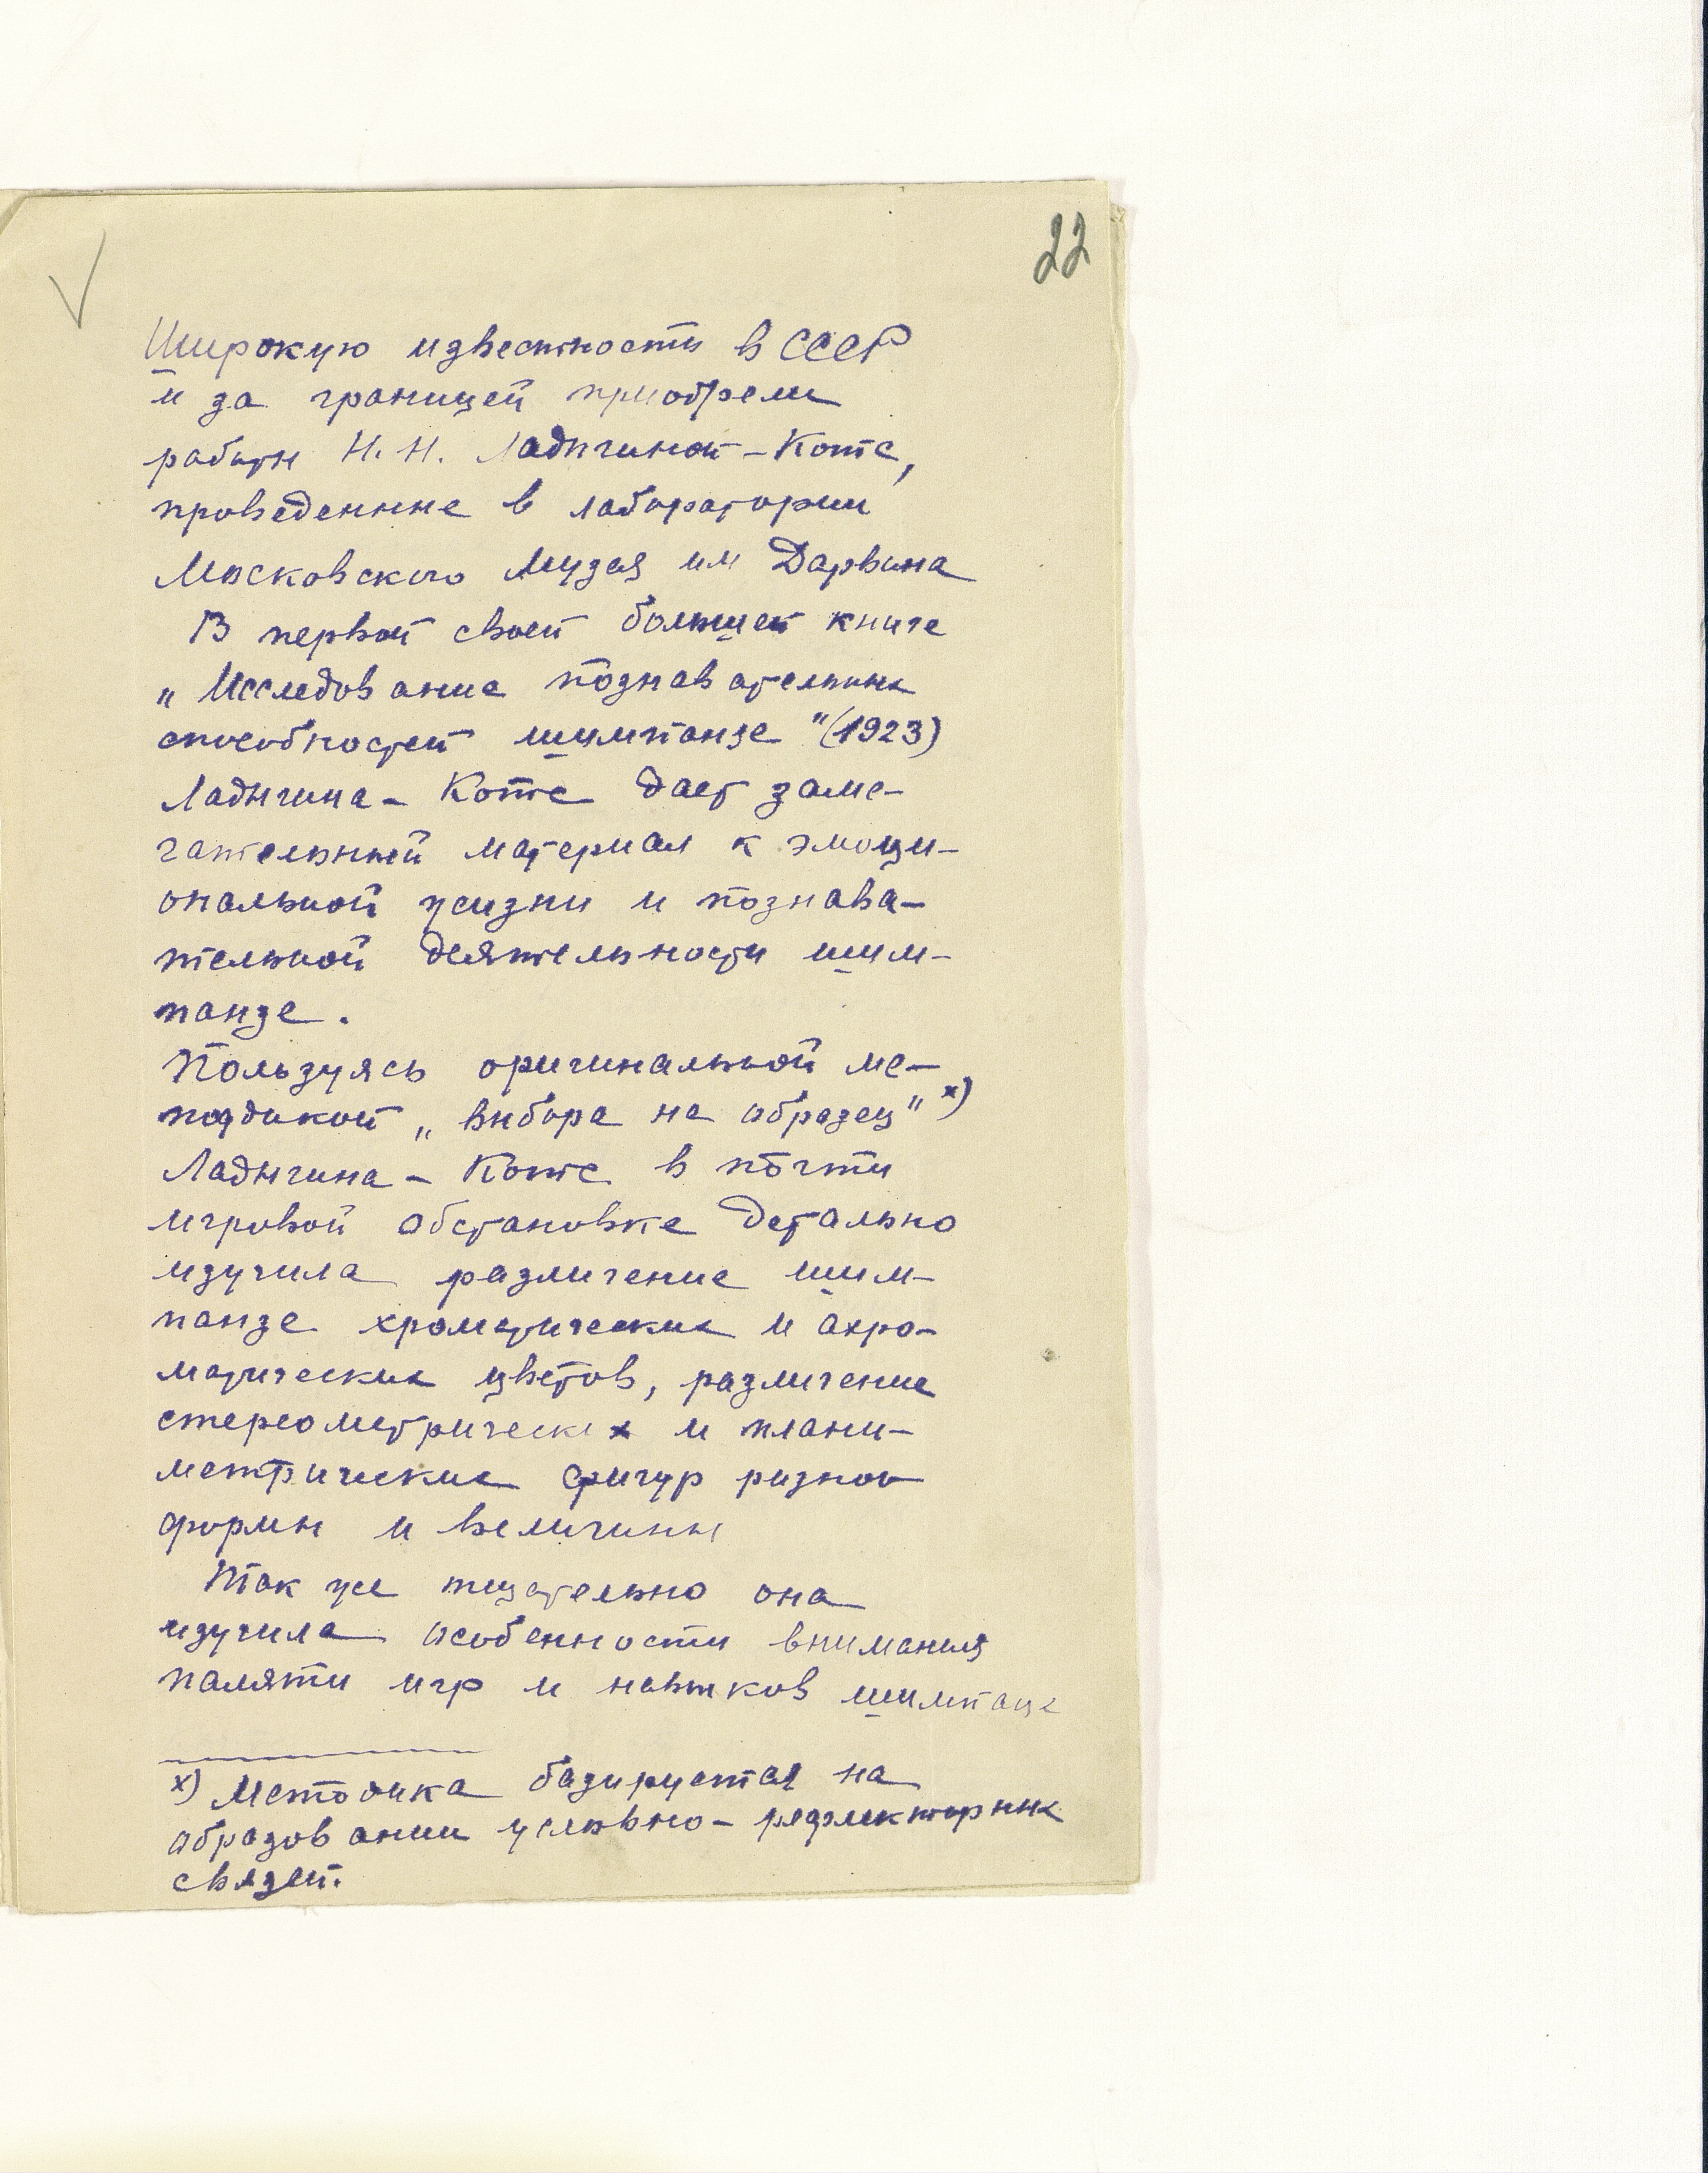 22
Широкую известность в СССР
и за границей приобрели
работы Н. Н. Ладыгиной-Котс,
проведенные в лаборатории
Московского Музея им Дарвина
В первой своей большей книге
„Исследование познавательных
способностей шимпанзе" (1923)
Ладыгина-Котс дает заме-
чательный материал к эмоци-
ональной жизни и познава-
тельной деятельности шим-
панзе.
Пользуясь оригинальной ме-
тодикой „выбора на образец" х)
Ладыгина-Котс в почти
игровой обстановке детально
изучила различение шим-
панзе хроматических и ахро-
матических цветов, различение
стереометрических и плани-
метрических фигур разной
формы и величины
Так же тщательно она
изучила особенности внимания
памяти игр и навыков шимпанзе
х) Методика базируется на
образовании условно-рефлекторных
связей.